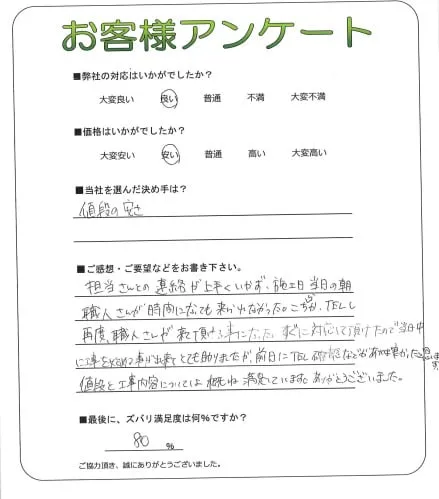 お客様アンケート
■弊社の対応はいかがでしたか?
大変良い 良い 普通 不満 大変不満
■価格はいかがでしたか?
大変安い 安い 普通 高い 大変高い
■当社を選んだ決め手は?
値段の安さ
■ご感想・ご要望などをお書き下さい。
担当さんとの連絡が上手くいかず、施工日当日の朝
職人さんが時間になっても来られなかった。こちらからTELし
再度、職人さんが来て頂ける事になった。すぐに対応して頂けたので当日中
に工事を始める事が出来てとても助りましたが、前日にTEL確認などがあれば良かったと思います
値段と工事内容については概ね満足しています。ありがとうございました。
■最後に、ズバリ満足度は何%ですか?
80 %
ご協力頂き、誠にありがとうございました。